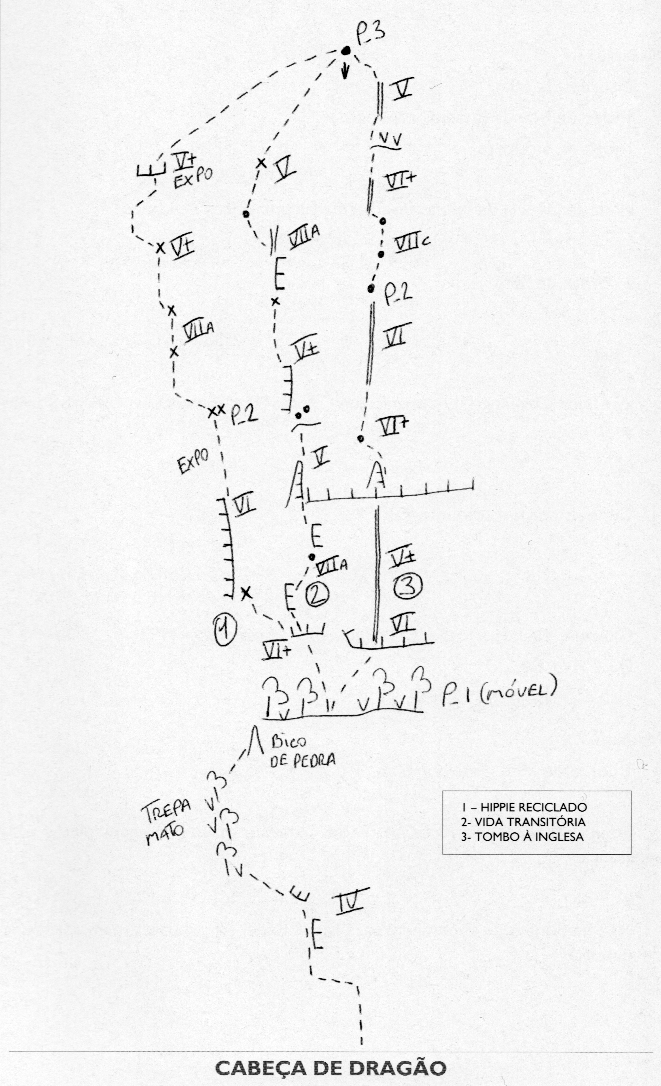 P_3
V
V+
EXPO
V
VI+
V+
VIIA
VIIc
P_2
VIIA
V+
VI
P_2
VI+
EXPO
V
VI
VIIA
V+
1
2
3
VI+
VI
P_1 (MÓVEL)
BICO
DE PEDRA
TREPA
MATO
1 – HIPPIE RECICLADO
2- VIDA TRANSITÓRIA
3- TOMBO À INGLESA
IV
CABEÇA DE DRAGÃO